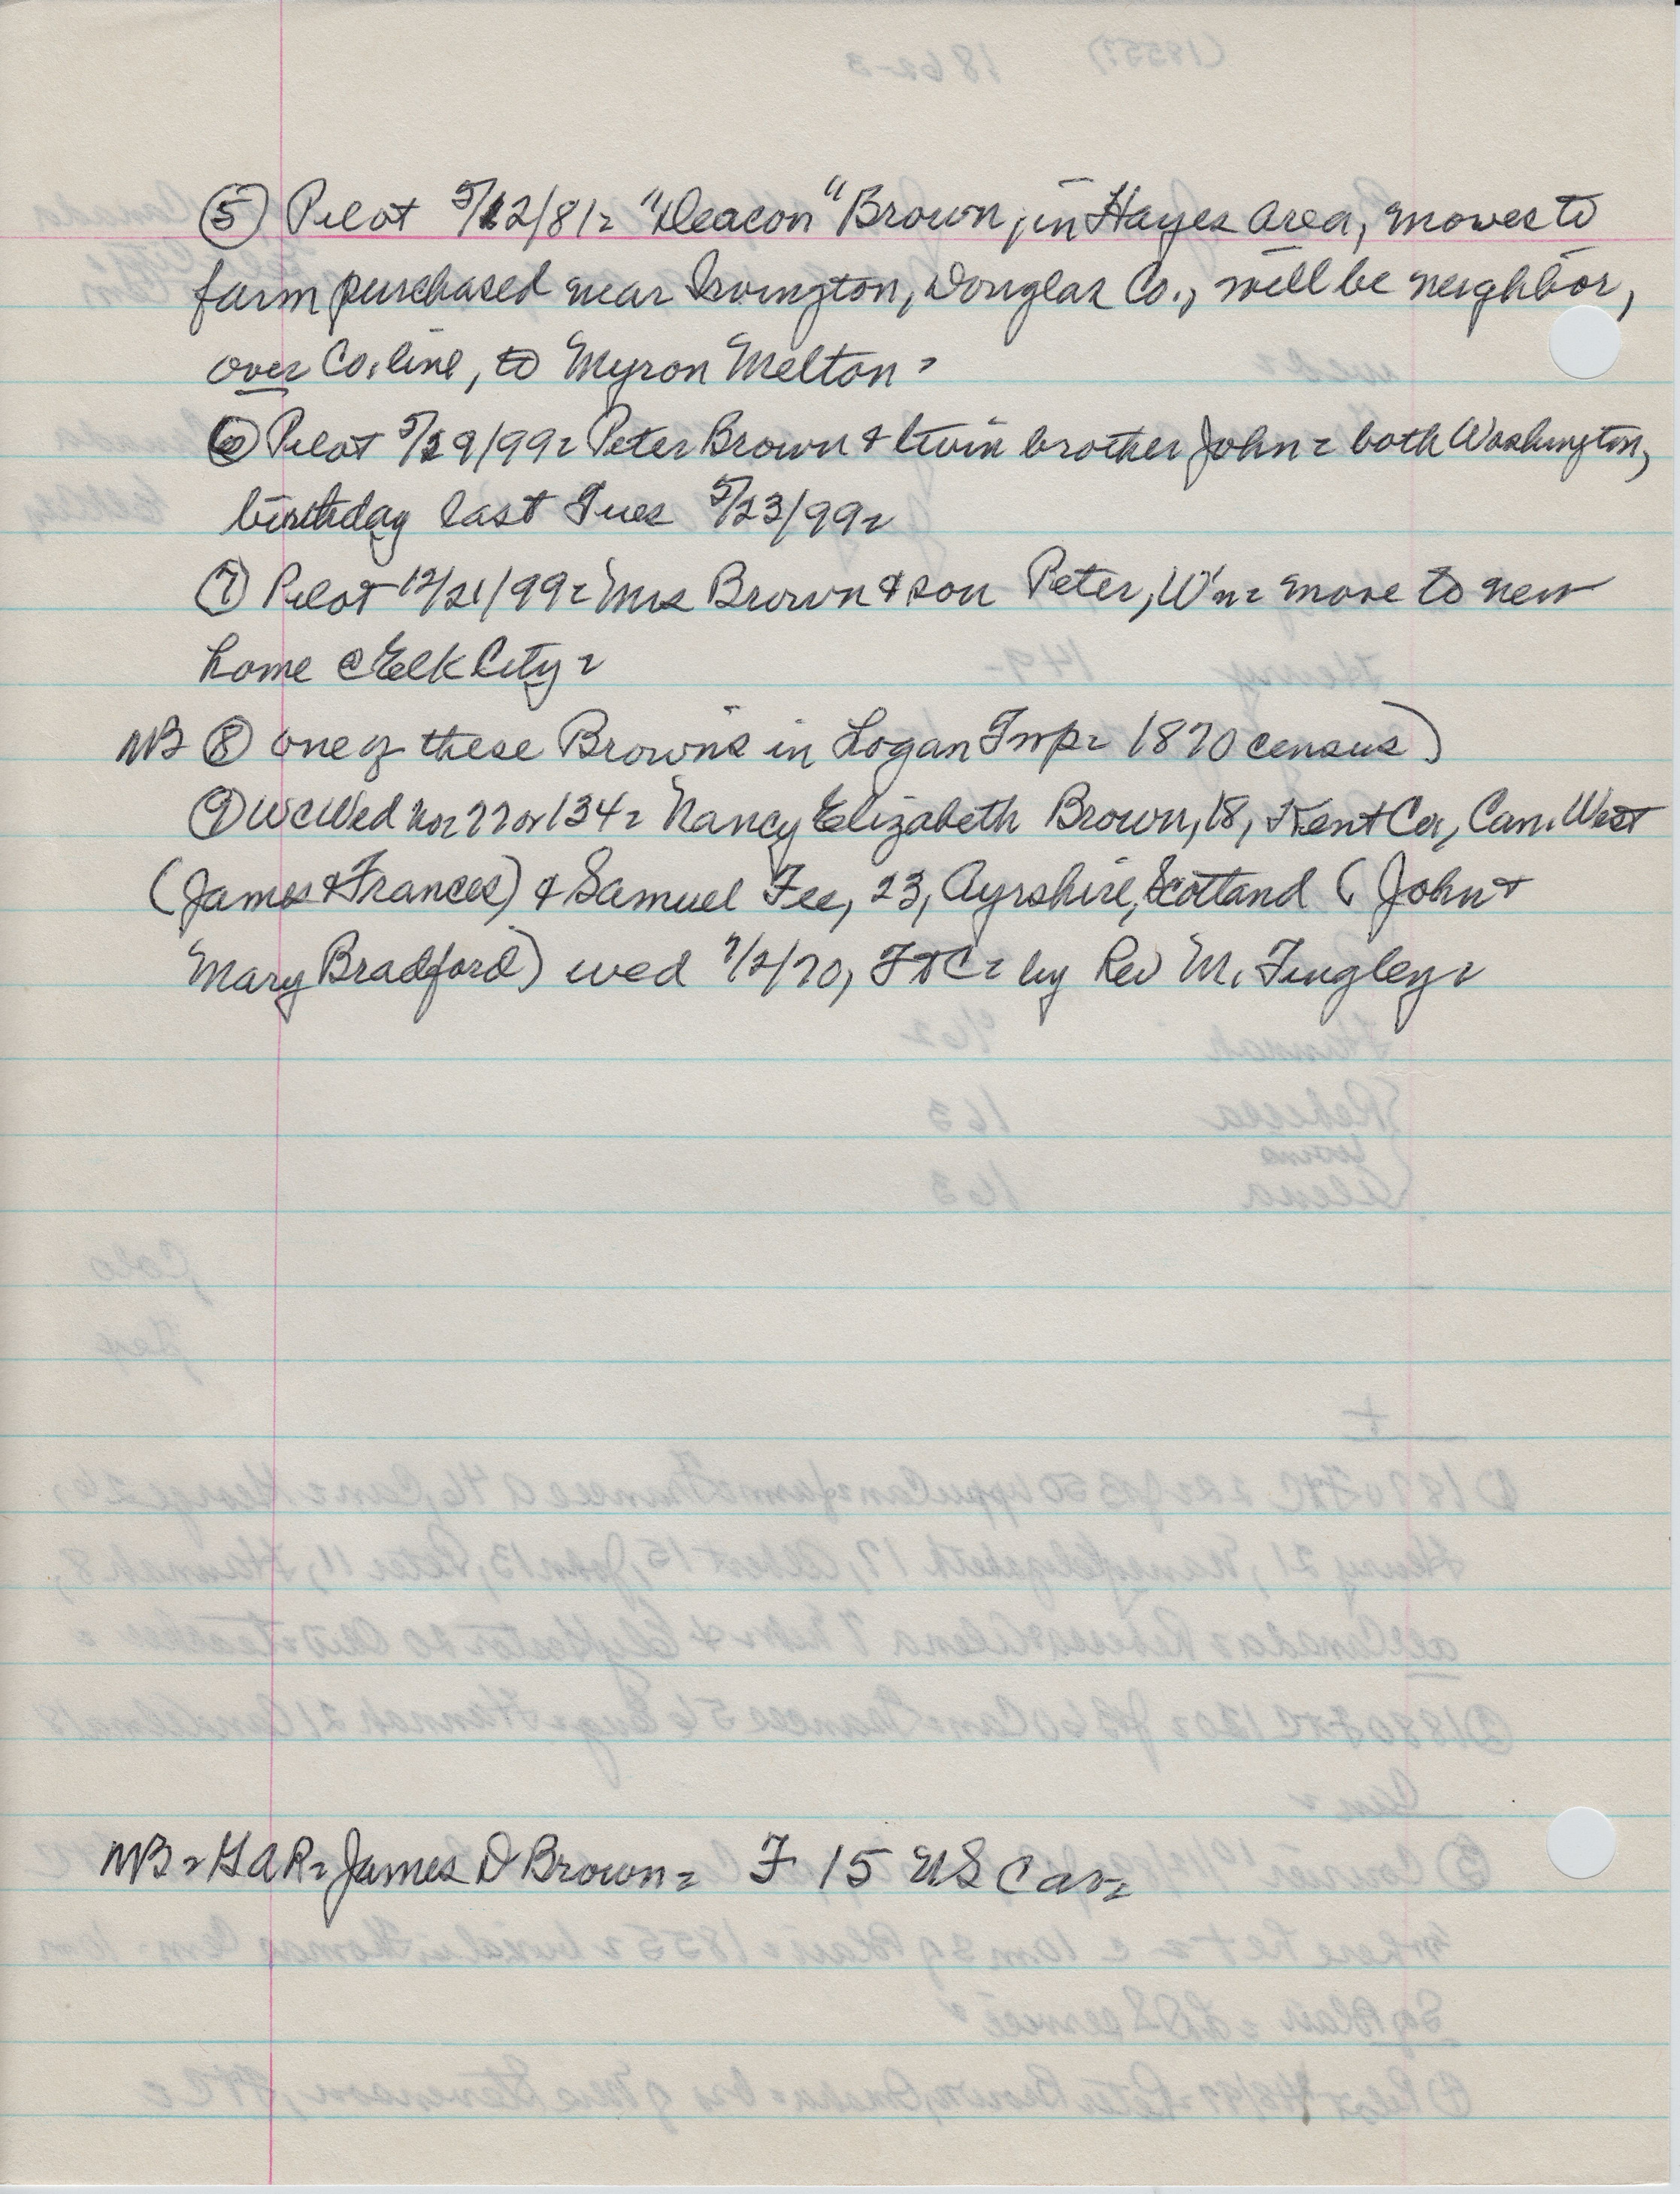 ⑤ Pilot 5/12/81= "Deacon" Brown, in Hayes area, moves to
farm purchased near Irvington, Douglas Co., will be neighbor,
over Co. line, to Myron Melton=
⑥ Pilot 5/29/99= Peter Brown & twin brother John= both Washington,
birthday last Tues 5/23/99=
⑦ Pilot 12/21/99= Mrs Brown & son Peter, W'n= move to new
home @ Elk City=
NB ⑧ one of these Browns in Logan Twp= 1870 census)
⑨ WCWed 134= Nancy Elizabeth Brown, 18, Kent Co, Can. West
(James & Frances) & Samuel Fee, 23, Ayrshire, Scotland (John &
Mary Bradford) wed /2/70, FtC= by Rev M. Tingley=
NB= GAR= James D Brown= F 15 US Cav=